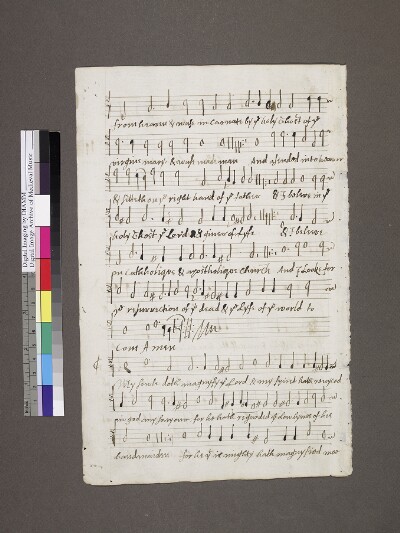 from heaven & was incarnate by yͤ holy Ghost of yͤ
virgine mary & was made man And assended into heaven
& sitteth on yͤ right hand of yͤ father & I beleve in yͤ
holy Ghost yͤ Lord & giver of lyfe & I beleve
on Catholique & apostholique church And I Looke for
yͤ resurrection of yͤ dead & yͤ Lyfe of yͤ world to
Com Amen
My soule doth magnify yͤ Lord & my spirit hath reioyced
in god my saviour for he hath regarded yͤ lowlynes of his
handmaiden for he yͭ is mighty hath magnified mee
Digital Imaging by DIAMM
Digital Image Archive of Medieval Music